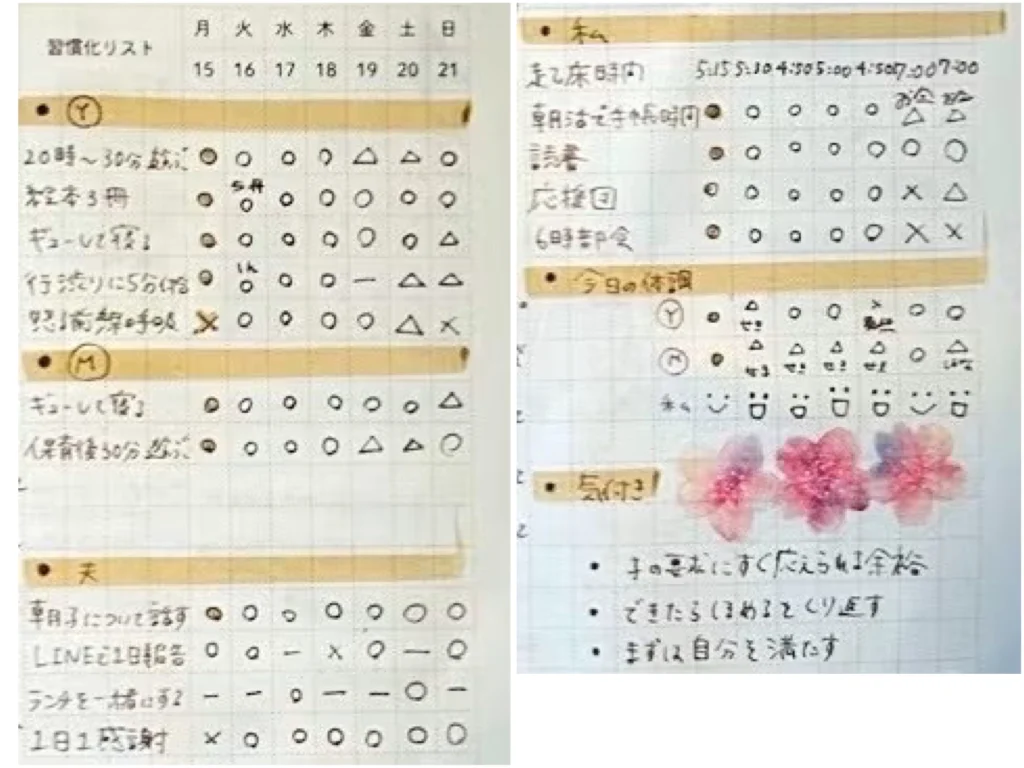 習慣化リスト 月 火 水 木 金 土 日
15 16 17 18 19 20 21
• Ⓨ
20時〜30分遊ぶ ● ○ ○ ○ △ △ ○
5冊
絵本3冊 ● ○ ○ ○ ○ ○ ○
ギューして寝る ● ○ ○ ○ ○ ○ △
行渋りに5分 ● ○ ○ ○ — △ △
怒る前深呼吸 × ○ ○ ○ ○ △ ×
• Ⓜ
ギューして寝る ● ○ ○ ○ ○ ○ △
保育後30分遊ぶ ● ○ ○ ○ △ △ ○
• 夫
朝子について話す ● ○ ○ ○ ○ ○ ○
LINEで1日報告 ○ ○ — × ○ — ○
ランチを一緒にする — — ○ — — ○ —
1日1感謝 × ○ ○ ○ ○ ○ ○
• 私
起床時間 5:15 5:10 4:50 5:00 4:50 7:00 7:00
朝活で手帳時間 ● ○ ○ ○ ○ △ △
読書 ● ○ ○ ○ ○ ○ ○
応援団 ○ ○ ○ ○ ○ × △
6時部会 ● ○ ○ ○ ○ × ×
• 今日の体調
Ⓨ ● △ ○ ○ × ○ ○
せき
Ⓜ ● △ △ △ △ ○ △
せき せき せき せき
私
• 気付き
• 子の要求にすぐ応えられる余裕
• できたらほめるをくり返す
• まずは自分を満たす